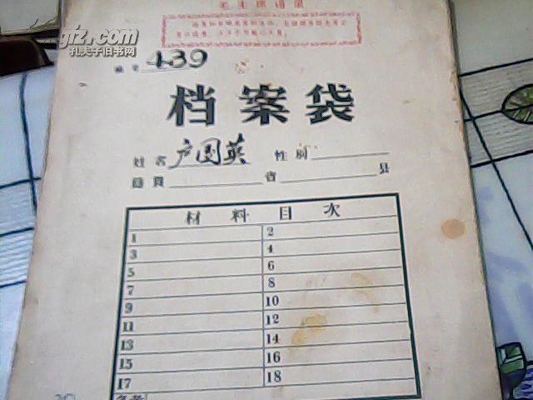 毛主席语录
gz.com
千家旧书网
编号 439
档案袋
姓名 卢国英 性别
籍贯 省 县
材料目次
1 2
3 4
5 6
7 8
9 10
11 12
13 14
15 16
17 18
备考